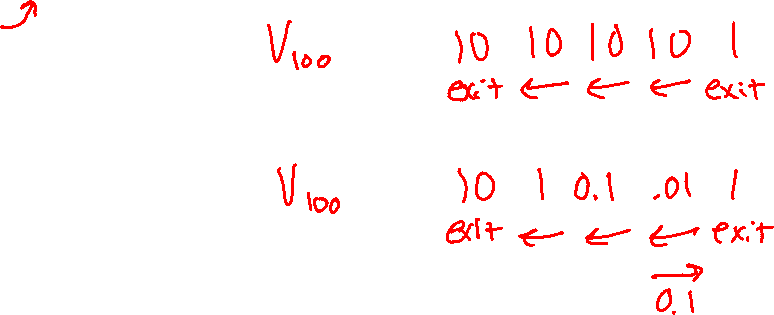 V₁₀₀ 10 10 10 10 1
exit ← ← ← exit
V₁₀₀ 10 1 0.1 .01 1
exit ← ← ← exit
→
0.1